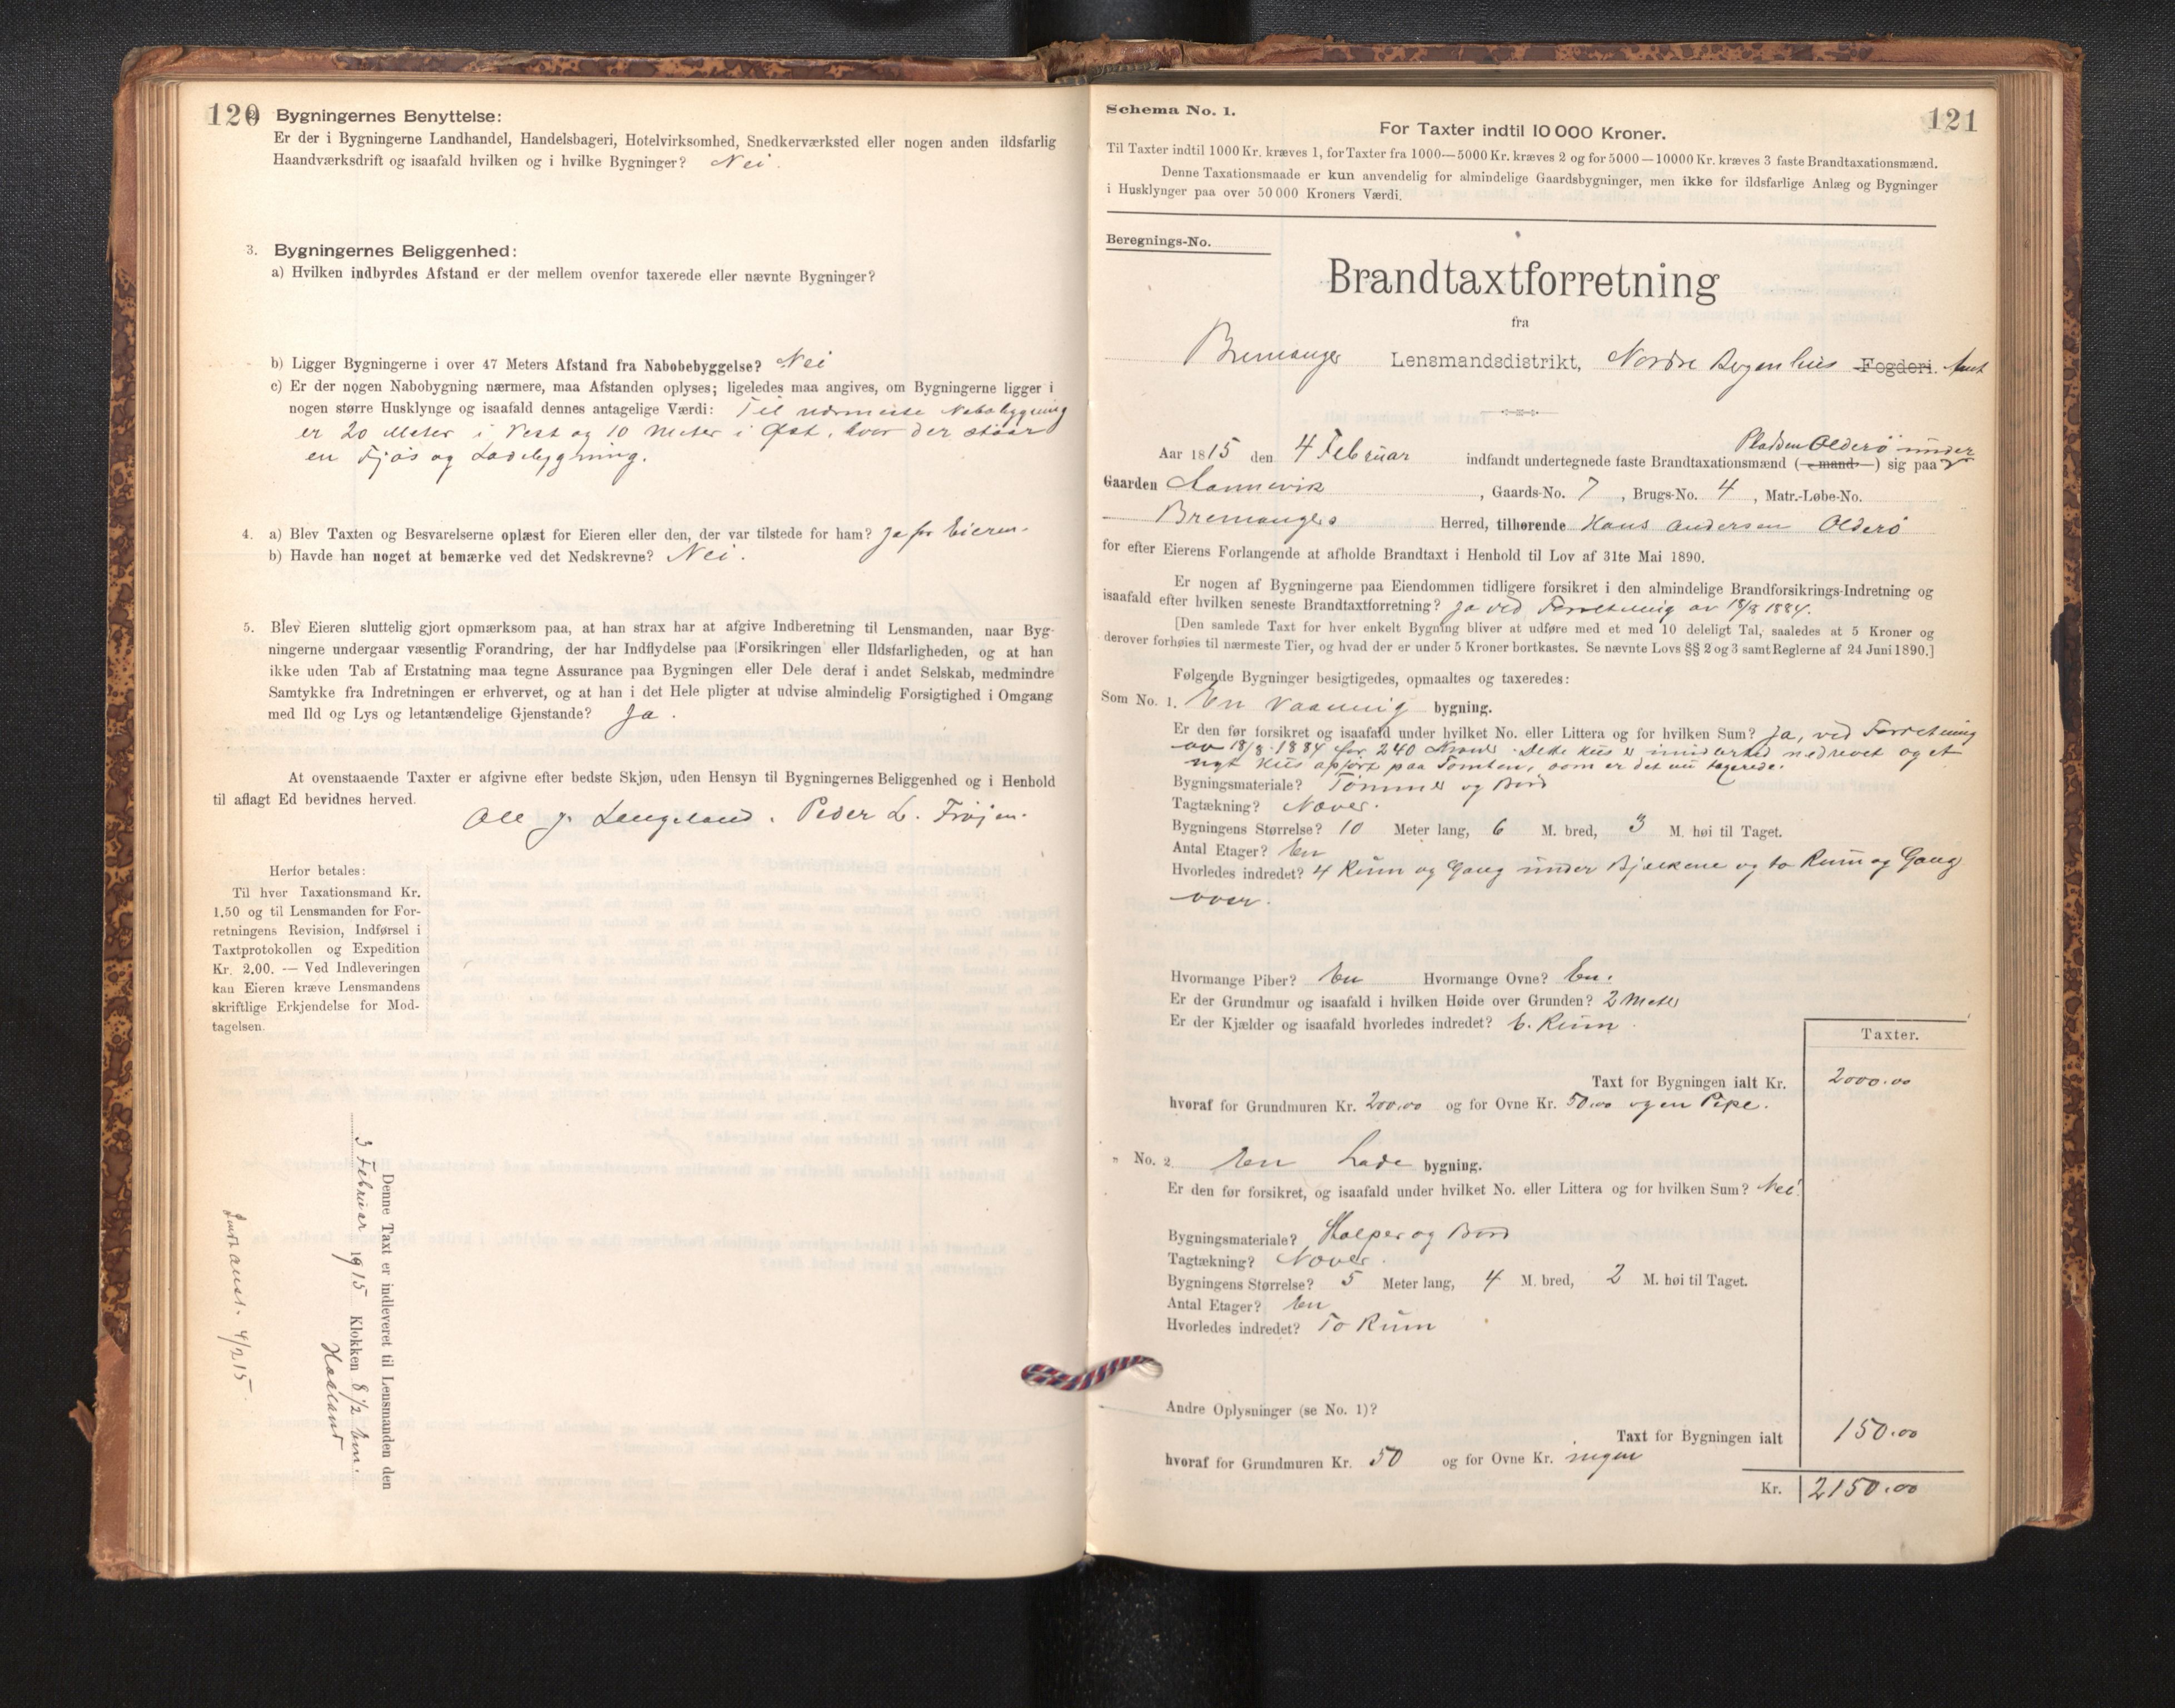 120
Bygningernes Benyttelse:
Er der i Bygningerne Landhandel, Handelsbageri, Hotelvirksomhed, Snedkerværksted eller nogen anden ildsfarlig
Haandværksdrift og isaafald hvilken og i hvilke Bygninger? Nei.
3. Bygningernes Beliggenhed:
a) Hvilken indbyrdes Afstand er der mellem ovenfor taxerede eller nævnte Bygninger?
b) Ligger Bygningerne i over 47 Meters Afstand fra Nabobebyggelse? Nei
c) Er der nogen Nabobygning nærmere, maa Afstanden oplyses; ligeledes maa angives, om Bygningerne ligger i
nogen større Husklynge og isaafald dennes antagelige Værdi: Til nærmeste Nabobygning
er 20 Meter i Vest og 10 Meter i Øst, hvor der staar
en Fjøs og Ladebygning.
4. a) Blev Taxten og Besvarelserne oplæst for Eieren eller den, der var tilstede for ham? Ja for Eieren.
b) Havde han noget at bemærke ved det Nedskrevne? Nei.
5. Blev Eieren sluttelig gjort opmærksom paa, at han strax har at afgive Indberetning til Lensmanden, naar Byg-
ningerne undergaar væsentlig Forandring, der har Indflydelse paa Forsikringen eller Ildsfarligheden, og at han
ikke uden Tab af Erstatning maa tegne Assurance paa Bygningen eller Dele deraf i andet Selskab, medmindre
Samtykke fra Indretningen er erhvervet, og at han i det Hele pligter at udvise almindelig Forsigtighed i Omgang
med Ild og Lys og letantændelige Gjenstande? Ja.
At ovenstaaende Taxter er afgivne efter bedste Skjøn, uden Hensyn til Bygningernes Beliggenhed og i Henhold
til aflagt Ed bevidnes herved.
Ole J. Langeland. Peder L. Frøjen.
Herfor betales:
Til hver Taxationsmand Kr.
1.50 og til Lensmanden for For-
retningens Revision, Indførsel i
Taxtprotokollen og Expedition
Kr. 2.00. — Ved Indleveringen
kan Eieren kræve Lensmandens
skriftlige Erkjendelse for Mod-
tagelsen.
Denne Taxt er indleveret til Lensmanden den
3 Februar 1915 Klokken 8 1/2 em.
Haaland
4/2 15.
Schema No. 1.
121
For Taxter indtil 10 000 Kroner.
Til Taxter indtil 1000 Kr. kræves 1, for Taxter fra 1000—5000 Kr. kræves 2 og for 5000—10000 Kr. kræves 3 faste Brandtaxationsmænd.
Denne Taxationsmaade er kun anvendelig for almindelige Gaardsbygninger, men ikke for ildsfarlige Anlæg og Bygninger
i Husklynger paa over 50 000 Kroners Værdi.
Beregnings-No.
Brandtaxtforretning
fra
Bremanger Lensmandsdistrikt, Nordre Bergenhus Fogderi. Amt
Pladsen Olderö under
Aar 1815 den 4 Februar indfandt undertegnede faste Brandtaxationsmænd (-mand-) sig paa
Gaarden , Gaards-No. 7 , Brugs-No. 4 , Matr.-Løbe-No.
Bremangers Herred, tilhørende Hans Andersen Olderö
for efter Eierens Forlangende at afholde Brandtaxt i Henhold til Lov af 31te Mai 1890.
Er nogen af Bygningerne paa Eiendommen tidligere forsikret i den almindelige Brandforsikrings-Indretning og
isaafald efter hvilken seneste Brandtaxtforretning? Ja ved Forretning av 18/8 1884.
[Den samlede Taxt for hver enkelt Bygning bliver at udføre med et med 10 deleligt Tal, saaledes at 5 Kroner og
derover forhøies til nærmeste Tier, og hvad der er under 5 Kroner bortkastes. Se nævnte Lovs §§ 2 og 3 samt Reglerne af 24 Juni 1890.]
Følgende Bygninger besigtigedes, opmaaltes og taxeredes:
Som No. 1. En Vaanings bygning.
Er den før forsikret og isaafald under hvilket No. eller Littera og for hvilken Sum? Ja, ved Forretning
av 18/8 1884 for 240 Kroner. Dette hus er imidlertid nedrevet og et
nyt hus opført paa Tomten, som er det nu taxerede.
Bygningsmateriale? Tömmer og Bord
Tagtækning? Næver.
Bygningens Størrelse? 10 Meter lang, 6 M. bred, 3 M. høi til Taget.
Antal Etager? En
Hvorledes indredet? 4 Rum og Gang under Bjælkene og to Rum og Gang
over.
Hvormange Piber? En Hvormange Ovne? En.
Er der Grundmur og isaafald i hvilken Høide over Grunden? 2 Meter
Er der Kjælder og isaafald hvorledes indredet? 1. Rum.
Taxter.
Taxt for Bygningen ialt Kr. 2000.00
hvoraf for Grundmuren Kr. 200.00 og for Ovne Kr. 50.00 og en Pipe.
„ No. 2 En Lade bygning.
Er den før forsikret, og isaafald under hvilket No. eller Littera og for hvilken Sum? Nei.
Bygningsmateriale? Stolper og Bord
Tagtækning? Næver.
Bygningens Størrelse? 5 Meter lang, 4 M. bred, 2 M. høi til Taget.
Antal Etager? En
Hvorledes indredet? To Rum
Andre Oplysninger (se No. 1)?
Taxt for Bygningen ialt 150.00
hvoraf for Grundmuren Kr. 50 og for Ovne Kr. ingen
Kr. 2150.00